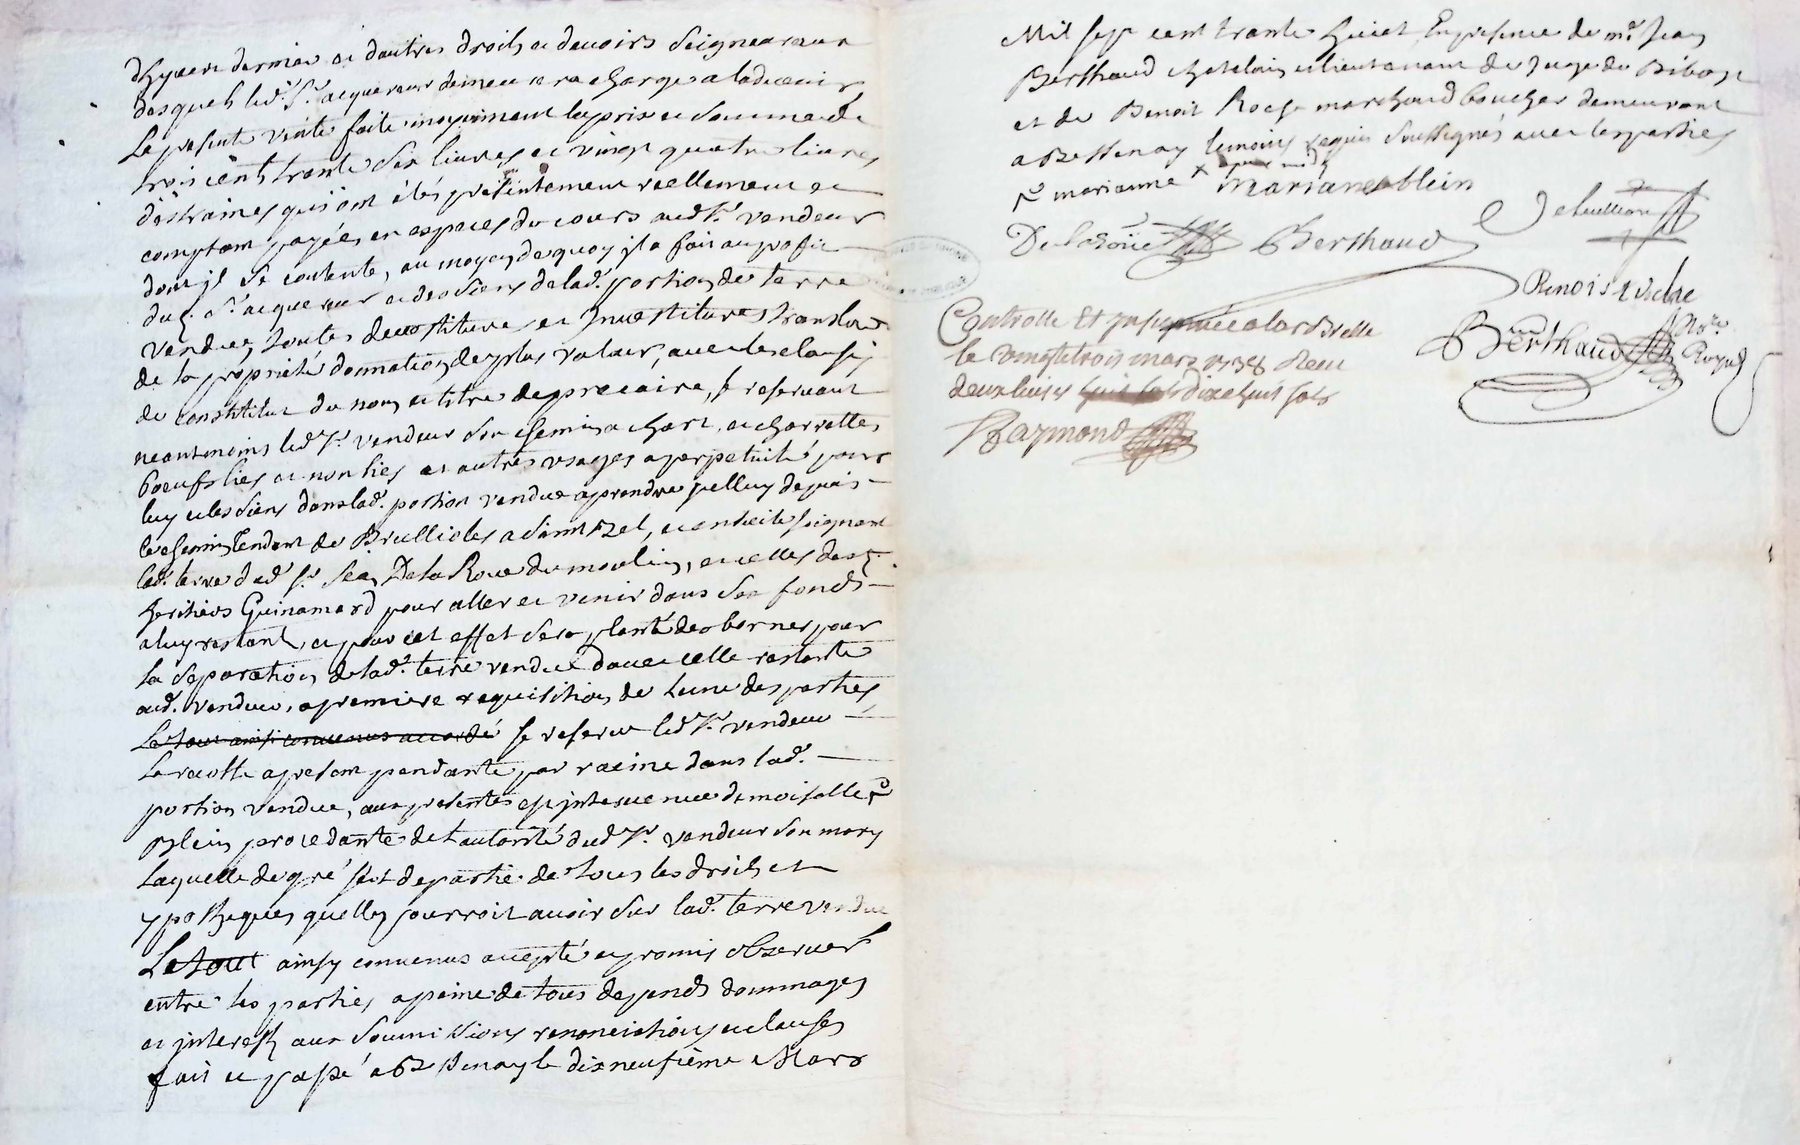 dhyvert dernier et d'autres droits et devoirs seigneuriaux
desquels led. Sr. acquereur demeure chargé a ladvenir
La presente vente faite moyennant le prix et somme de
trois cents trente six livres et vingt quatre livres
d'etraines qui ont étés presentement reellement et
comptant payées en especes du cours aud Sr. vendeur
dont jl se contente, au moyen de quoy jl a fait au profit
dud. Sr. acquereur et des siens de lad. portion de terre
vendue, toutes devestitures et Investitures translat
de la propriété donnation de plus valeur, avec les clauses
de constitut du nom et titre de precaire, se reservant
neantmoins led Sr. vendeur son chemin a chart et charrettes
boeufs liés et non liés et autres usages a perpetuité pour
luy et les siens dans lad. portion vendue a prendre jcelluy depuis
le chemin tendant de Brullioles a Saint Bel, et ensuite joignant
lad. terre dud Sr. Jean De la Roue du moulin, et celles des
heritiers Guinamard pour aller et venir dans ses fonds
a luy restant, et pour cet effet sera planté des bornes pour
la separation de lad. terre vendue d'avec celle restante
aud. vendeur, a premiere requisition de lune des parties
Le tout ainsi convenus accordé se reserve led Sr. vendeur
la recolte a present pendante par racine dans lad.
portion vendue, aux presentes est jntervenue demoiselle
Blein procedante de l'autorité dud Sr. vendeur son mary
Laquelle de gré s'est departie de tous les droits et
ypotheques quelle pourroit avoir sur lad. terre vendue
Le tout ainsy convenus accepté et promis observer
entre les parties a peine de tous depends dommages
et jnterest aux soumissions renonciations et clauses
fait et passé a Bessenay le dix neufième Mars
Mil sept cent trente huict, En presence de me. Jean
Berthaud chatelain et lieutenant de juge de Bibost
et de Benoit Roche marchand boucher demeurant
a Bessenay temoins requis soussignés avec les parties
marianne x apres midy
Mariane blein
De la Roüe Berthaud
Benoist Roche
Berthaud Nore. Royal
Controllé Et jnsinué a larbrelle
le vingt trois mars 1738 Receu
deux livres dix et huit sols
Raymond